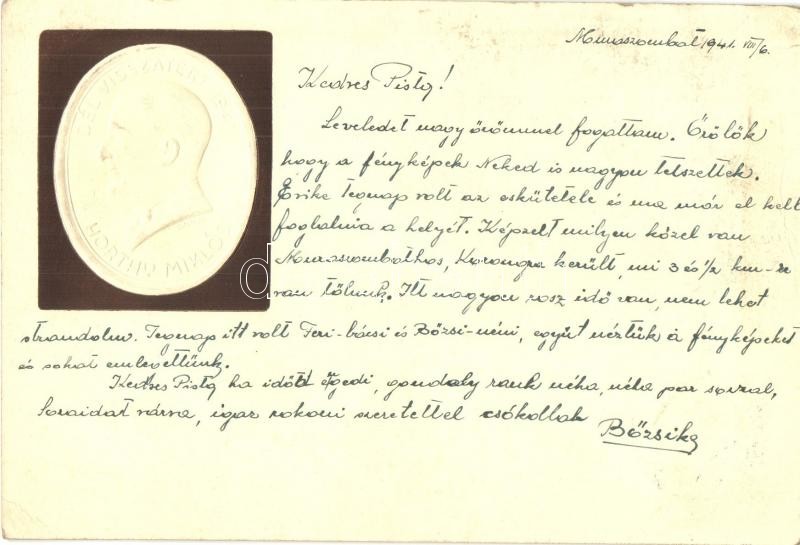 Muraszombat 1941. VIII/6.
DÉL VISSZATÉRT 194
HORTHY MIKLÓS
Kedves Pista!
Leveledet nagy örömmel fogattam. Örölök
hogy a fényképek Neked is nagyon tetszettek.
Erike tegnap volt az eskütetele és ma már el kelt
foglalnia a helyét. Képzelt milyen közel van
Muraszombathos, Korongra került, mi 3 és 1/2 km-re
van tőlünk. Itt nagyon rosz idő van, nem lehet
strandolni. Tegnap itt volt Feri-bácsi és Bözsi-néni, együt néztük a fényképeket
és sokat emlegettünk.
Kedves Pista ha időd egedi, gondoly ránk néha, néha par sorral,
Soraidat várva, igaz rokoni szeretettel csókollak
Bözsike
d